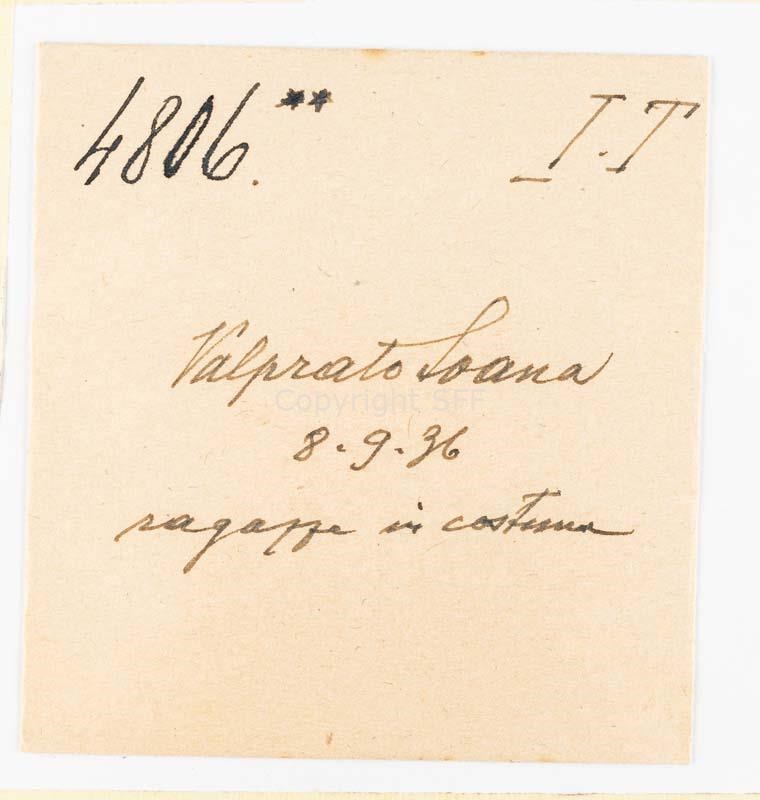 4806.** I.T
Valprato Soana
Copyright SFF
8.9.36
ragazze in costume